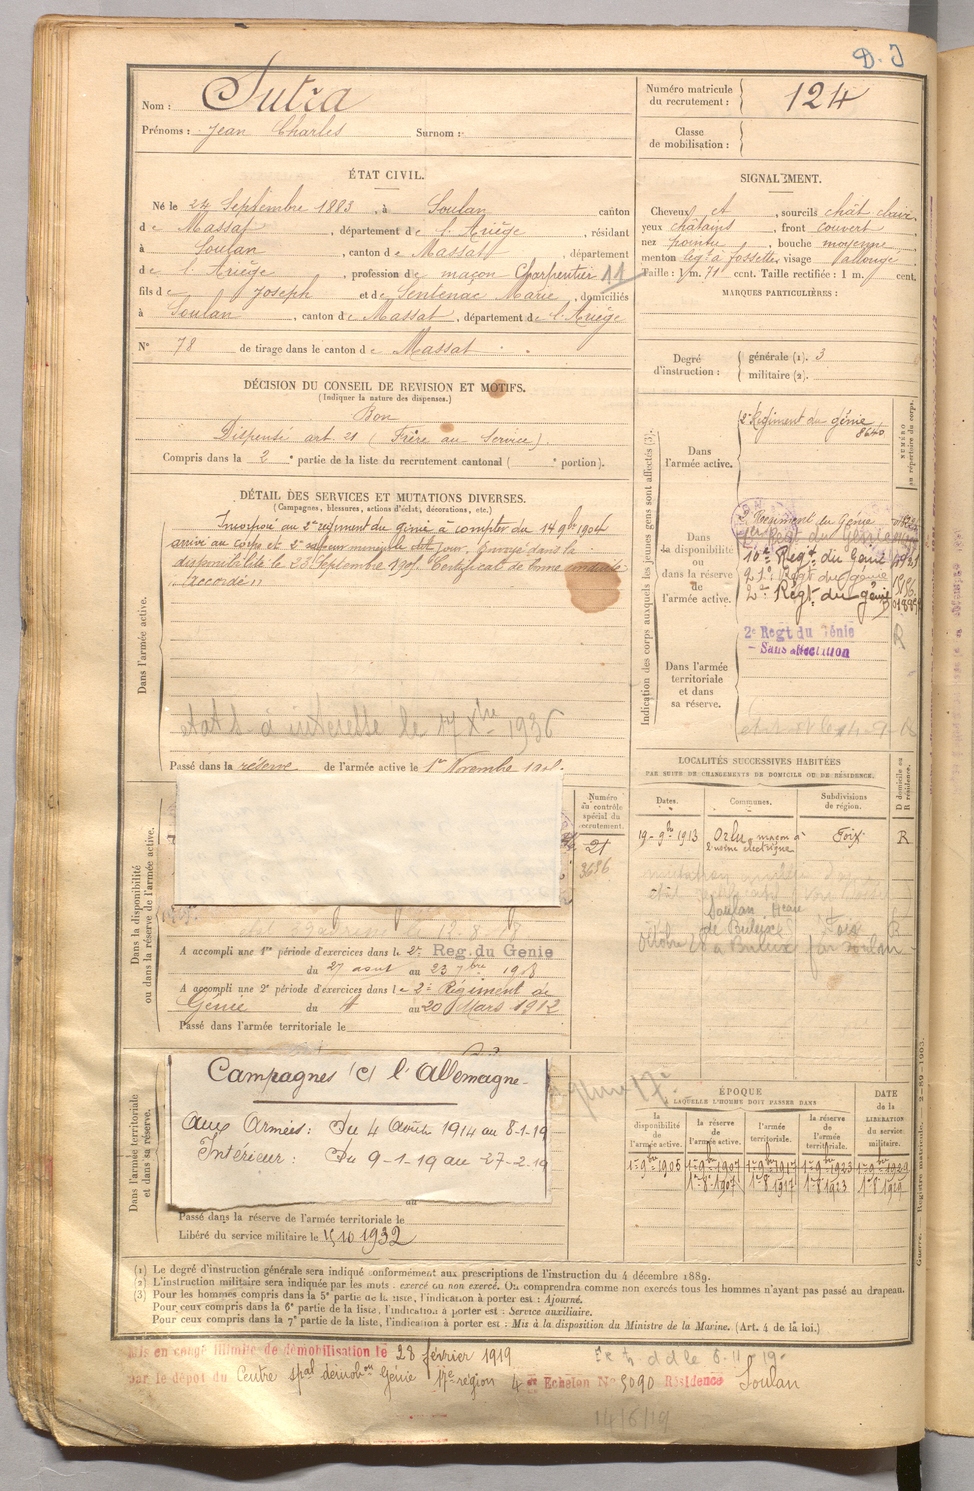 D. J
Nom : Sutra
Prénoms : Jean Charles Surnom :
Numéro matricule du recrutement : 124
Classe de mobilisation :
ÉTAT CIVIL.
Né le 24 Septembre 1883, à Soulan canton
de Massat, département de l'Ariège, résidant
à Soulan, canton de Massat, département
de l'Ariège, profession de maçon Charpentier 11
fils de Joseph et de Sentenac Marie, domiciliés
à Soulan, canton de Massat, département de l'Ariège
N° 78 de tirage dans le canton de Massat
SIGNALEMENT.
Cheveux et, sourcils chât clairs
yeux châtains, front couvert,
nez pointu, bouche moyenne,
menton lég à fossette, visage allongé
Taille : 1 m. 71 cent. Taille rectifiée : 1 m. cent.
MARQUES PARTICULIÈRES :
Degré d'instruction : générale (1). 3
militaire (2).
DÉCISION DU CONSEIL DE REVISION ET MOTIFS.
(Indiquer la nature des dispenses.)
Bon
Dispensé art. 21 (Frère au Service).
Compris dans la 2e partie de la liste du recrutement cantonal ( e portion).
DÉTAIL DES SERVICES ET MUTATIONS DIVERSES.
(Campagnes, blessures, actions d'éclat, décorations, etc.)
Dans l'armée active.
Incorporé au 2e régiment du génie à compter du 14 9bre 1904
arrivé au corps et 2e sapeur mineur le dit jour. Envoyé dans la
disponibilité le 23 Septembre 1905. Certificat de bonne conduite
"Accordé"
le 17 Xbre 1936
Passé dans la réserve de l'armée active le 1er Novembre
Indication des corps auxquels les jeunes gens sont affectés (3).
NUMÉRO au répertoire du corps.
Dans l'armée active.
2e Régiment du génie
8640
Dans la disponibilité ou dans la réserve de l'armée active.
Régiment du Génie
Régt du Génie
10e Régt du Génie
21e Régt du génie
2e Régt du génie
2e Regt du Génie
- Sans affectation
R
Dans l'armée territoriale et dans sa réserve.
LOCALITÉS SUCCESSIVES HABITÉES
PAR SUITE DE CHANGEMENTS DE DOMICILE OU DE RÉSIDENCE.
D domicile ou R résidence.
Dates. Communes. Subdivisions de région.
19-9bre 1913 Orlu maçon à l'usine électrique Foix R
Soulan
Foix R
Dans la disponibilité ou dans la réserve de l'armée active.
Numéro au contrôle spécial du recrutement.
21
3686
A accompli une 1re période d'exercices dans le 2e Reg. du Genie
du 27 aout au 23 7bre 1908
A accompli une 2e période d'exercices dans le 2e Régiment de
Génie du 4 au 20 Mars 1912
Passé dans l'armée territoriale le
Dans l'armée territoriale et dans sa réserve.
Campagnes C) l'Allemagne
Aux Armées : Du 4 Août 1914 au 8-1-19
Intérieur : Du 9-1-19 au 27-2-19
au
Passé dans la réserve de l'armée territoriale le
Libéré du service militaire le 15 10 1932
ÉPOQUE
À LAQUELLE L'HOMME DOIT PASSER DANS
DATE de la LIBÉRATION du service militaire.
la disponibilité de l'armée active. la réserve de l'armée active. l'armée territoriale. la réserve de l'armée territoriale.
1er 9bre 1905 1er 9bre 1907 1er 9bre 1917 1er 9bre 1923 1er 9bre 1929
1er 8 1907 1er 8 1917 1er 8 1923 1er 8 1929
Guerre. Registre matricule. 2-89-1903.
(1) Le degré d'instruction générale sera indiqué conformément aux prescriptions de l'instruction du 4 décembre 1889.
(2) L'instruction militaire sera indiquée par les mots : exercé ou non exercé. On comprendra comme non exercés tous les hommes n'ayant pas passé au drapeau.
(3) Pour les hommes compris dans la 5e partie de la liste, l'indication à porter est : Ajourné.
Pour ceux compris dans la 6e partie de la liste, l'indication à porter est : Service auxiliaire.
Pour ceux compris dans la 7e partie de la liste, l'indication à porter est : Mis à la disposition du Ministre de la Marine. (Art. 4 de la loi.)
Mis en congé illimité de démobilisation le 28 février 1919
par le dépot du Centre spal démobon Génie 17e région 4e Echelon N° 5090 Résidence Soulan
14/6/19